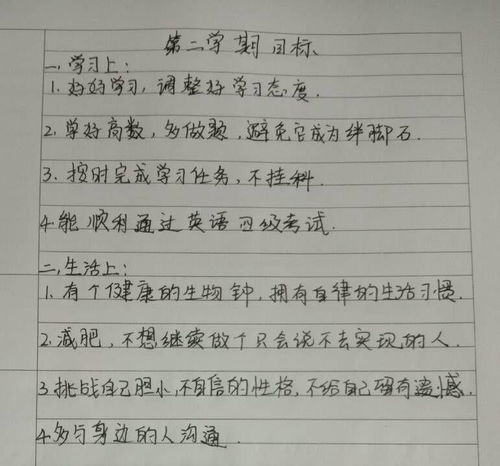 第二学期目标
一、学习上：
1. 好好学习，调整好学习态度.
2. 学好高数，多做题，避免它成为绊脚石.
3. 按时完成学习任务，不挂科.
4. 能顺利通过英语四级考试.
二、生活上：
1. 有个健康的生物钟，拥有自律的生活习惯.
2. 减肥，不想继续做个只会说不去实现的人.
3. 挑战自己胆小，不自信的性格，不给自己留有遗憾.
4. 多与身边的人沟通.